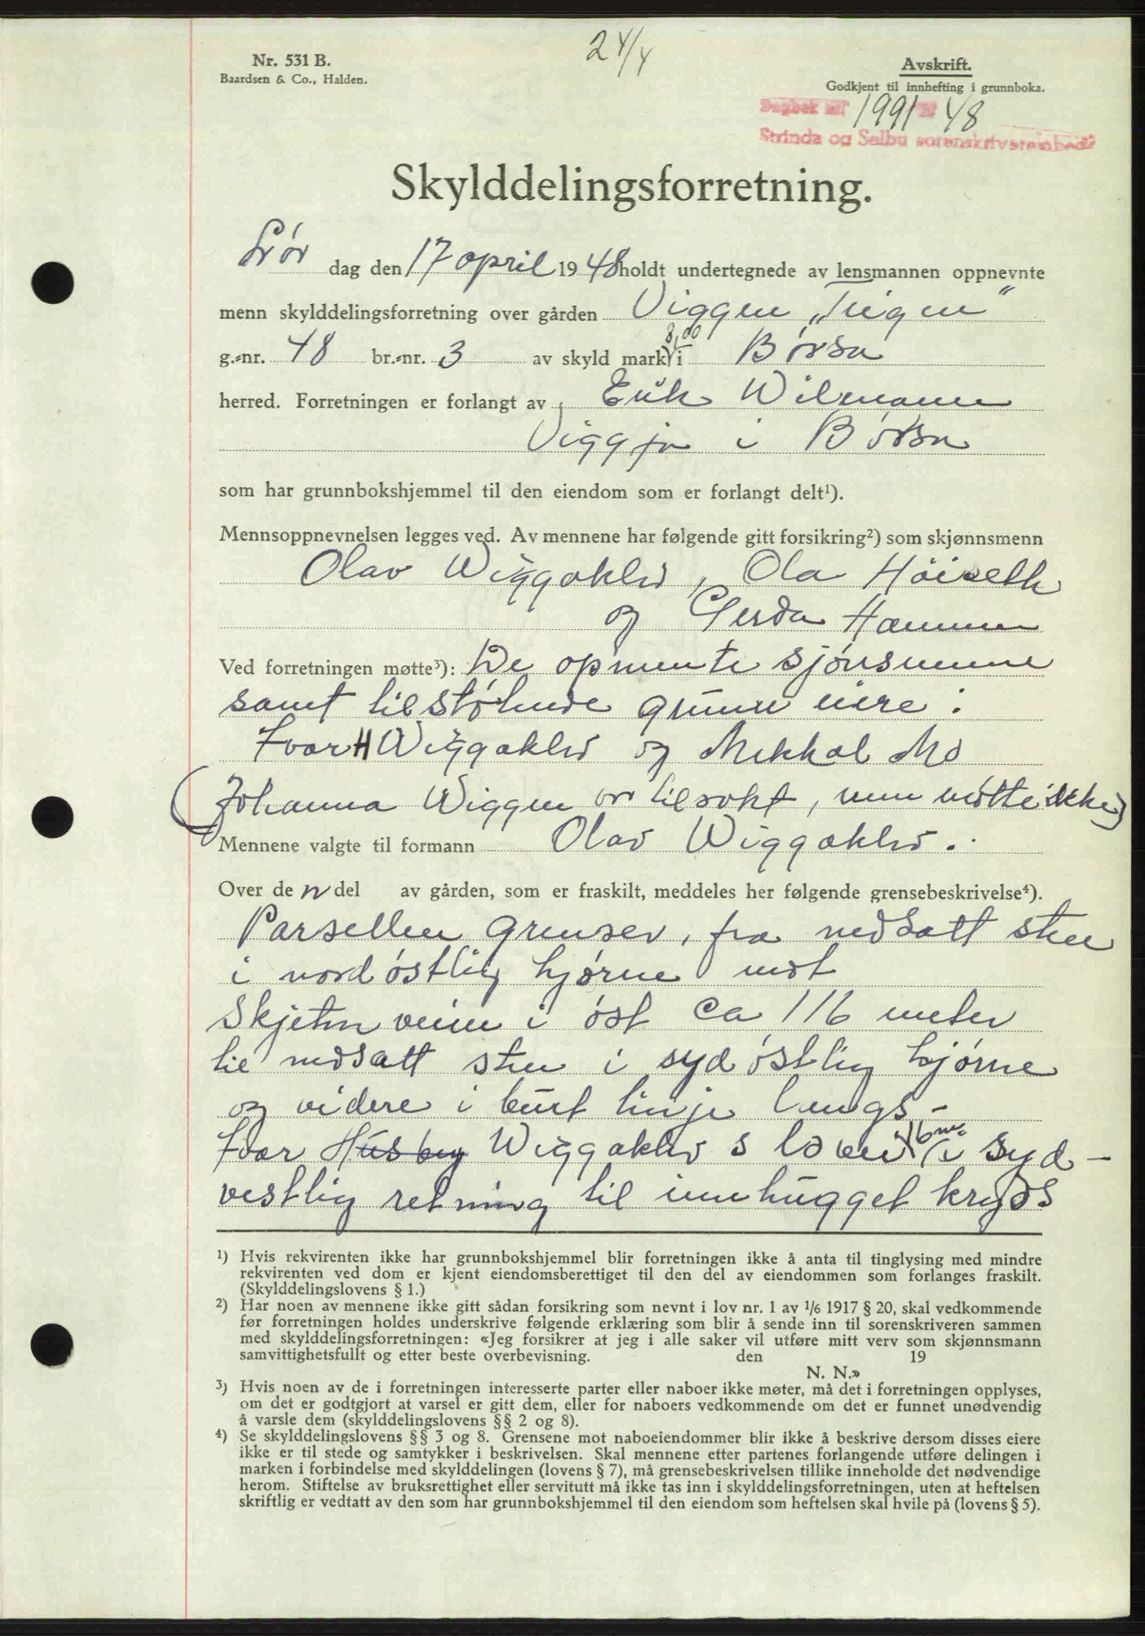 Nr. 531 B.
Baardsen & Co., Halden.
24/4
Avskrift.
Godkjent til innhefting i grunnboka.
Dagbok nr 1991 48
Strinda og Selbu sorenskriverembede
Skylddelingsforretning.
Lør dag den 17 april 1948 holdt undertegnede av lensmannen oppnevnte
menn skylddelingsforretning over gården Viggen
g.-nr. 48 br.-nr. 3 av skyld mark 3,00 i Børsa
herred. Forretningen er forlangt av Erik Wilmann
Viggja i Børsa
som har grunnbokshjemmel til den eiendom som er forlangt delt¹).
Mennsoppnevnelsen legges ved. Av mennene har følgende gitt forsikring²) som skjønnsmenn
Olav Wiggaklev, Ola Høiseth
og Gerda Hammer
Ved forretningen møtte³): De opnevnte sjønsmenne
samt tilstøtende grunn eiere:
Ivar H Wiggaklev og Mikkal Mo
(Johanna Wiggen er tilsakt, men møtte ikke)
Mennene valgte til formann Olav Wiggaklev.
Over de n del av gården, som er fraskilt, meddeles her følgende grensebeskrivelse⁴).
Parsellen grenser, fra nedsatt sten
i nordøstlig hjørne mot
Skjetnveien i øst ca 116 meter
til nedsatt sten i sydøstlig hjørne
og videre i bent linje langs-
Ivar Husby Wiggaklev s 16 m i syd-
vestlig retning til innhugget kryss
¹) Hvis rekvirenten ikke har grunnbokshjemmel blir forretningen ikke å anta til tinglysing med mindre
rekvirenten ved dom er kjent eiendomsberettiget til den del av eiendommen som forlanges fraskilt.
(Skylddelingslovens § 1.)
²) Har noen av mennene ikke gitt sådan forsikring som nevnt i lov nr. 1 av 1/6 1917 § 20, skal vedkommende
før forretningen holdes underskrive følgende erklæring som blir å sende inn til sorenskriveren sammen
med skylddelingsforretningen: «Jeg forsikrer at jeg i alle saker vil utføre mitt verv som skjønnsmann
samvittighetsfullt og etter beste overbevisning. den 19
N. N.»
³) Hvis noen av de i forretningen interesserte parter eller naboer ikke møter, må det i forretningen opplyses,
om det er godtgjort at varsel er gitt dem, eller for naboers vedkommende om det er funnet unødvendig
å varsle dem (skylddelingslovens §§ 2 og 8).
⁴) Se skylddelingslovens §§ 3 og 8. Grensene mot naboeiendommer blir ikke å beskrive dersom disses eiere
ikke er til stede og samtykker i beskrivelsen. Skal mennene etter partenes forlangende utføre delingen i
marken i forbindelse med skylddelingen (lovens § 7), må grensebeskrivelsen tillike inneholde det nødvendige
herom. Stiftelse av bruksrettighet eller servitutt må ikke tas inn i skylddelingsforretningen, uten at heftelsen
skriftlig er vedtatt av den som har grunnbokshjemmel til den eiendom som heftelsen skal hvile på (lovens § 5).